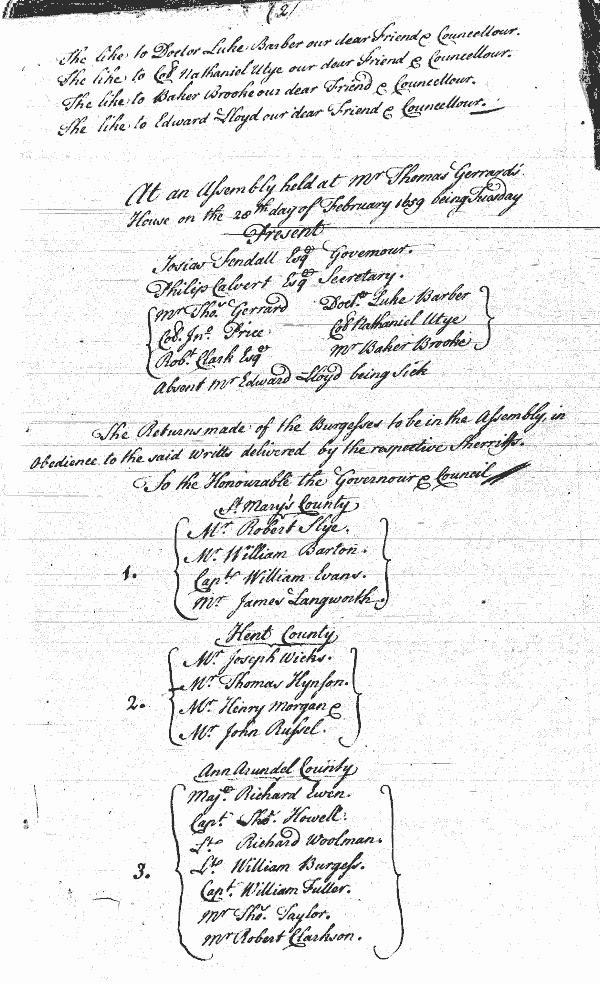 (2)
The like to Doctor Luke Barber our dear Friend & Councellour.
The like to Coll. Nathaniel Utye our dear Friend & Councellour.
The like to Baker Brooke our dear Friend & Councellour.
The like to Edward Lloyd our dear Friend & Councellour.
At an Assembly held at Mr Thomas Gerrard's
House on the 28th day of February 1659 being Tuesday
Present
Josias Fendall Esqr Governour.
Philip Calvert Esqr Secretary.
Mr Tho. Gerrard Doctr Luke Barber
Col. Jno. Price Col Nathaniel Utye
Robt. Clark Esqr Mr Baker Brooke
Absent Mr Edward Lloyd being Sick
The Returns made of the Burgesses to be in the Assembly, in
Obedience to the said Writts delivered by the respective Sherriffs.
To the Honourable the Governour & Council
St. Mary's County
Mr. Robert Slye.
Mr. William Barton.
1. Capt. William Evans.
Mr. James Langworth.
Kent County
Mr. Joseph Wicks.
Mr. Thomas Hynson.
2. Mr. Henry Morgan &
Mr. John Russel.
Ann Arundel County
Majr. Richard Ewen.
Capt. Tho. Howell.
Lt. Richard Woolman.
3. Lt. William Burgess.
Capt. William Fuller.
Mr Tho. Taylor.
Mr Robert Clarkson.